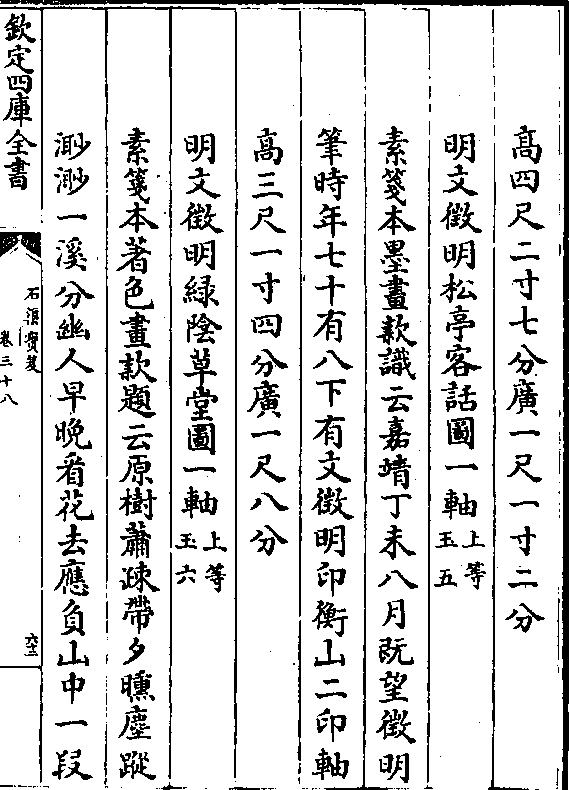 高四尺二寸七分廣一尺一寸二分
明文徴明松亭客話圖一軸上等玉五
素箋本墨畫款識云嘉靖丁未八月既望徴明
筆時年七十有八下有文徴明印衡山二印軸
高三尺一寸四分廣一尺八分
明文徴明緑陰草堂圖一軸上等玉六
素箋本著色畫款題云原樹蕭疎帶夕曛塵蹤
渺渺一溪分幽人早晚看花去應負山中一段
欽定四庫全書
石渠寳笈
卷三十八